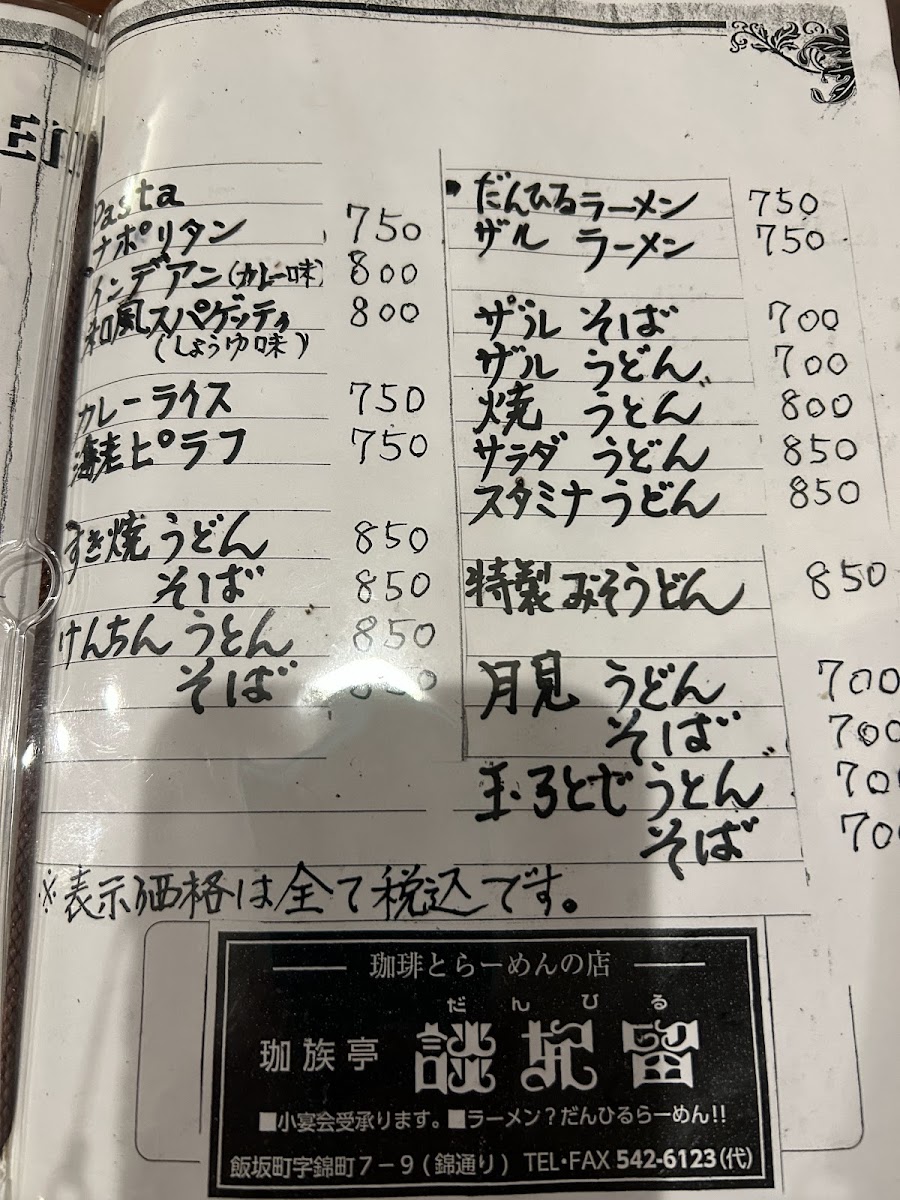 Pasta
ナポリタン 750
インデアン(カレー味) 800
和風スパゲッティ 800
(しょうゆ味)
カレーライス 750
海老ピラフ 750
すき焼うどん 850
そば 850
けんちんうどん 850
そば
・だんひるラーメン 750
ザル ラーメン 750
ザル そば 700
ザル うどん 700
焼 うどん 800
サラダ うどん 850
スタミナうどん 850
特製みそうどん 850
月見 うどん 700
そば 700
玉子とじうどん 700
そば 700
※表示価格は全て税込です。
珈琲とらーめんの店
だんひる
珈族亭 談妃留
■小宴会受承ります。■ラーメン?だんひるらーめん!!
飯坂町字錦町7-9(錦通り) TEL・FAX 542-6123(代)